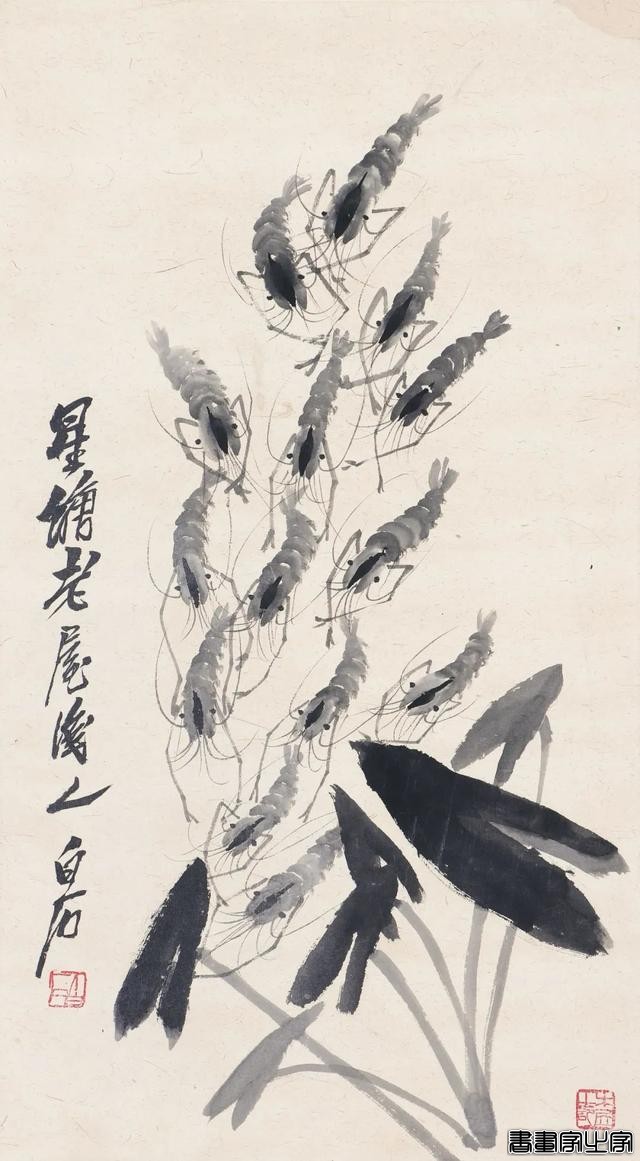 星塘老屋後人
白石
書畫家之家